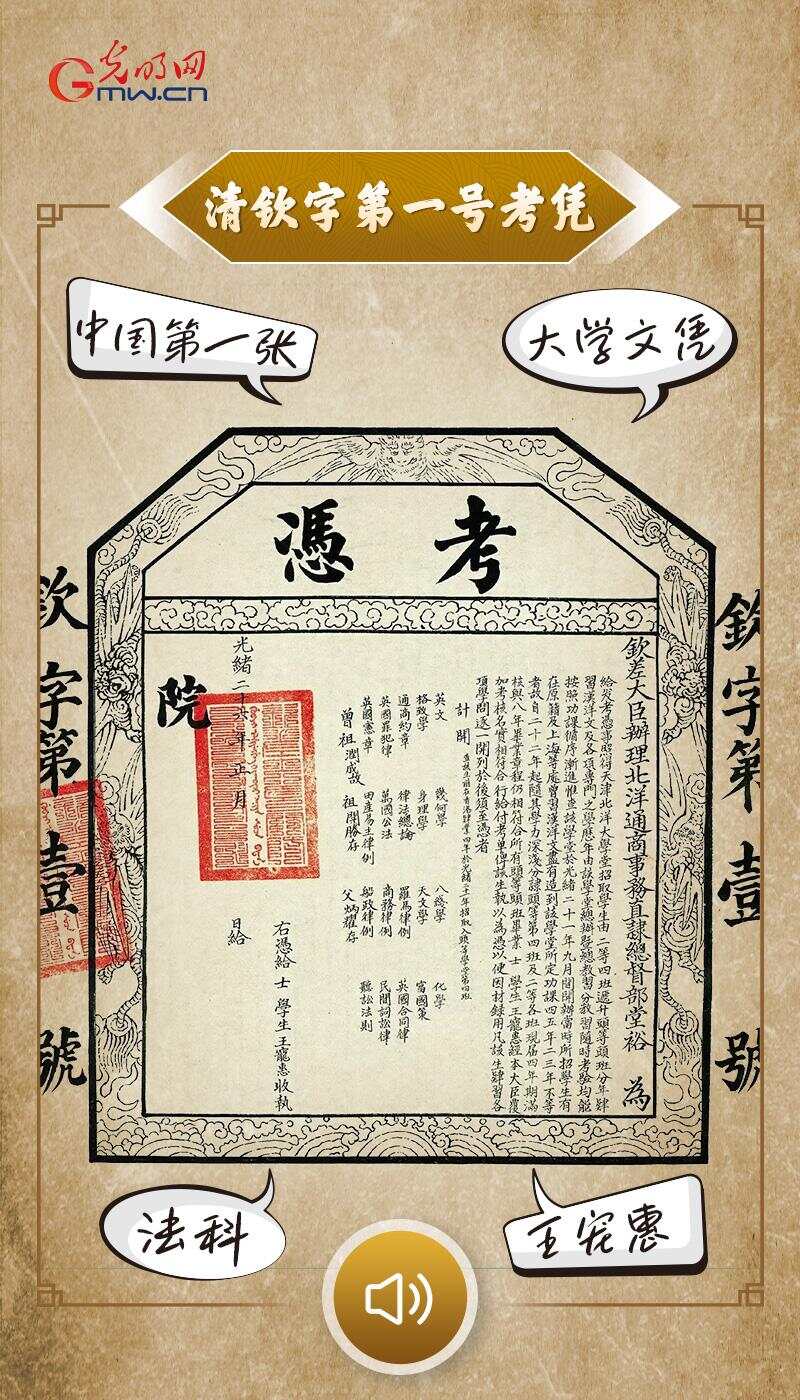 光明网
Gmw.cn
清钦字第一号考凭
中国第一张
大学文凭
考憑
欽字第壹號
欽差大臣辦理北洋通商事務直隸總督部堂裕 為
給發考憑事照得天津北洋大學堂招取學生由二等四班遞升頭等頭班分年肄
習漢洋文及各項專門之學歷八年由該學堂總辦暨總教習分教習隨時考驗均能
按照功課循序漸進惟查該學堂於光緒二十一年九月間開辦當時所招學生有
在原籍及上海等處曾習漢洋文盡有造到該學堂所定功課四五年二三年不等
者故自二十二年起隨其學力深淺分隸頭等第四班及二等各班現屆四年期滿
核與八年畢業章程仍相符合所有頭等頭班畢業 士 學生王寵惠經本大臣覆
加考核名實相符合行給付考單俾該生執以為憑以便因材録用凡該生肄習各
項學問逐一開列於後須至憑者
計開
英文 幾何學 八綫學 化學
格致學 身理學 天文學 富國策
通商約章 律法總論 羅馬律例 英國合同律
英國罪犯律 萬國公法 商務律例 民間詞訟律
英國憲章 田產易主律例 船政律例 聽訟法則
曾祖潤成故 祖開勝存 父炳耀存
右憑給 士 學生王寵惠收執
光緒二十六年正月 日給
院
欽字第壹號
法科
王宠惠